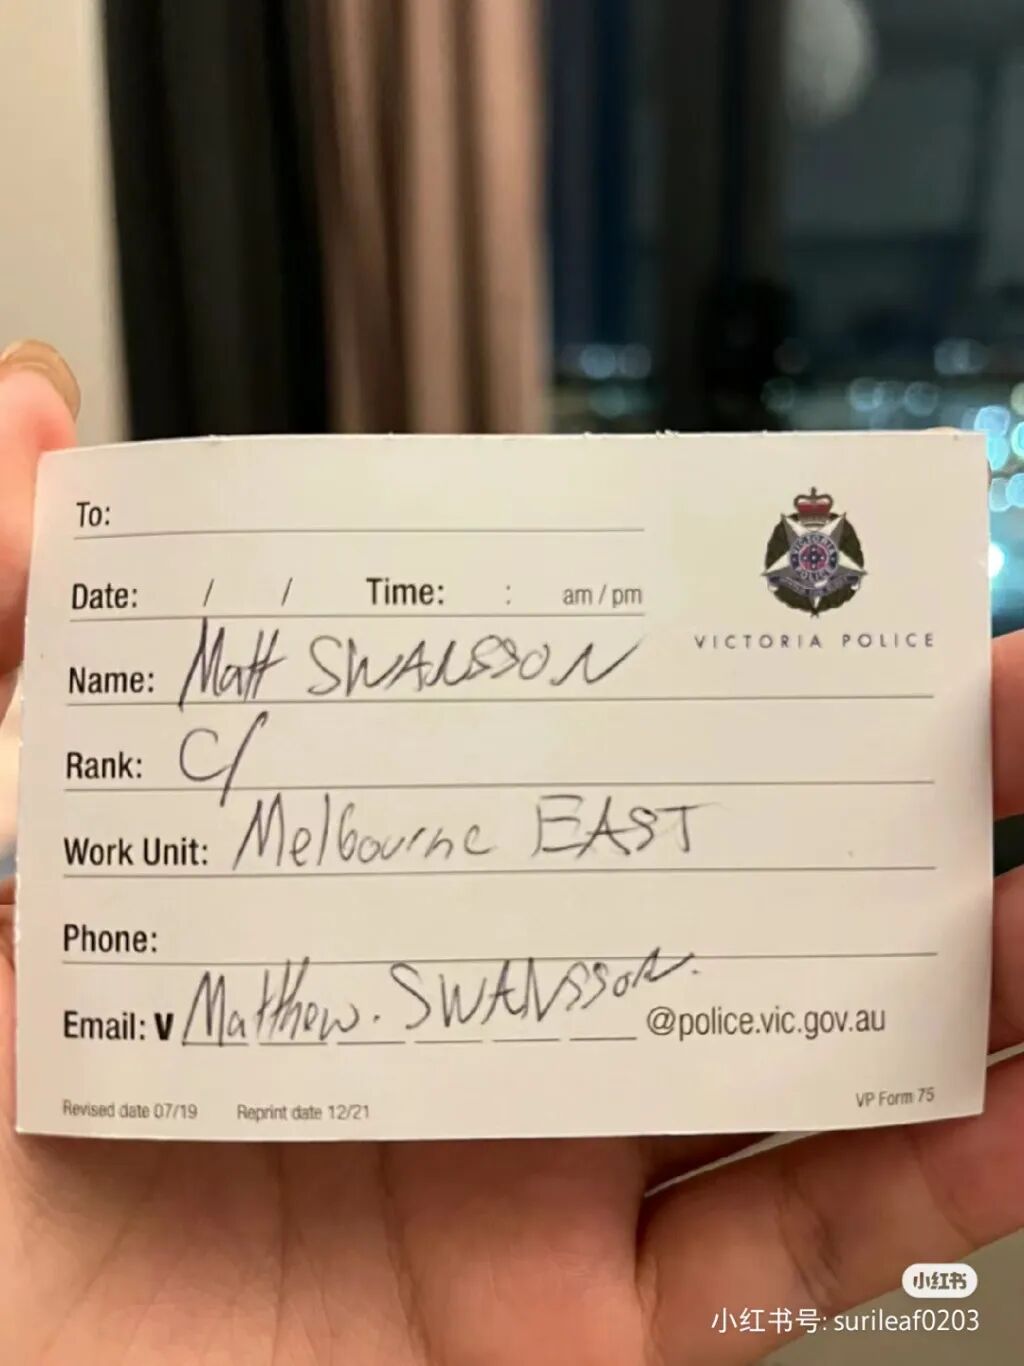 To:
VICTORIA POLICE
Date: / / Time: : am / pm
VICTORIA POLICE
Name: Matt SWANSSON
Rank: C/
Work Unit: Melbourne EAST
Phone:
Email: V Matthew. SWANSSON. @police.vic.gov.au
Revised date 07/19 Reprint date 12/21 VP Form 75
小红书
小红书号: surileaf0203